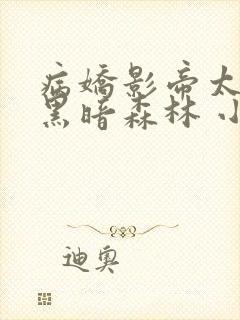 病嬌影帝太
黑暗森林 小
迪奧